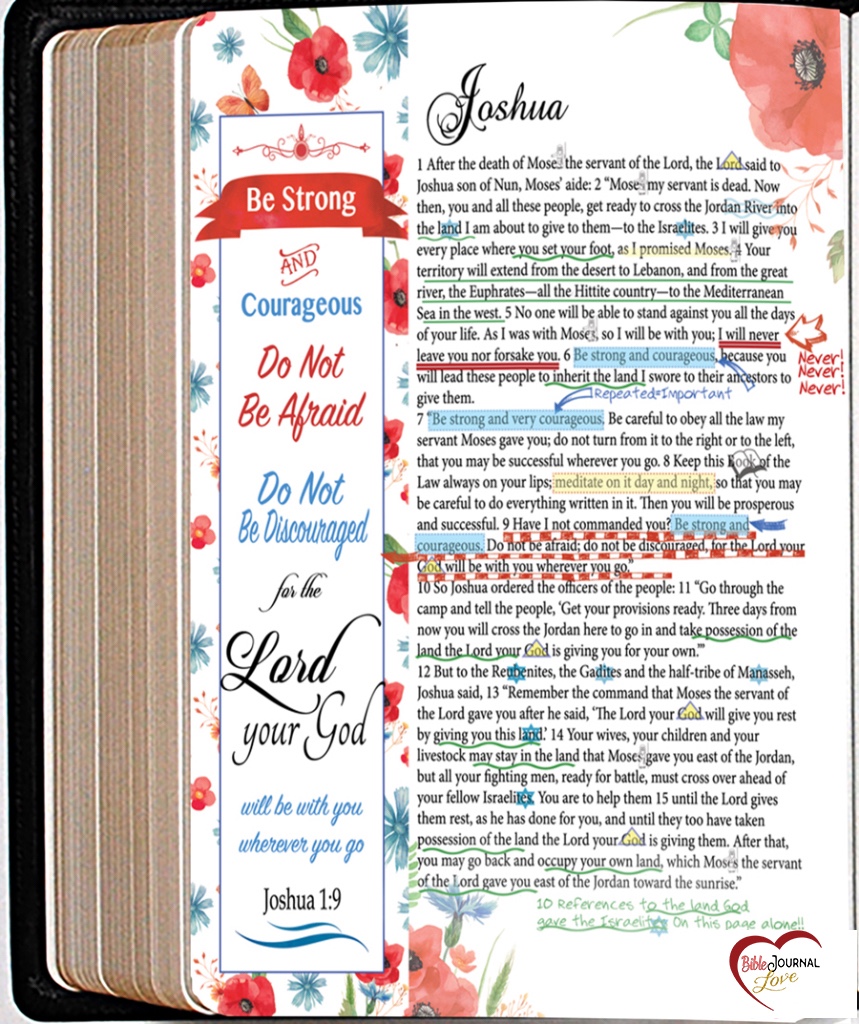 Be Strong
AND
Courageous
Do Not
Be Afraid
Do Not
Be Discouraged
for the
Lord
your God
will be with you
wherever you go
Joshua 1:9
Joshua
1 After the death of Moses the servant of the Lord, the Lord said to
Joshua son of Nun, Moses’ aide: 2 “Moses my servant is dead. Now
then, you and all these people, get ready to cross the Jordan River into
the land I am about to give to them—to the Israelites. 3 I will give you
every place where you set your foot, as I promised Moses. 4 Your
territory will extend from the desert to Lebanon, and from the great
river, the Euphrates—all the Hittite country—to the Mediterranean
Sea in the west. 5 No one will be able to stand against you all the days
of your life. As I was with Moses, so I will be with you; I will never
leave you nor forsake you. 6 Be strong and courageous, because you
will lead these people to inherit the land I swore to their ancestors to
give them.
Never!
Never!
Never!
Repeated=Important
7 “Be strong and very courageous. Be careful to obey all the law my
servant Moses gave you; do not turn from it to the right or to the left,
that you may be successful wherever you go. 8 Keep this Book of the
Law always on your lips; meditate on it day and night, so that you may
be careful to do everything written in it. Then you will be prosperous
and successful. 9 Have I not commanded you? Be strong and
courageous. Do not be afraid; do not be discouraged, for the Lord your
God will be with you wherever you go.”
10 So Joshua ordered the officers of the people: 11 “Go through the
camp and tell the people, ‘Get your provisions ready. Three days from
now you will cross the Jordan here to go in and take possession of the
land the Lord your God is giving you for your own.’”
12 But to the Reubenites, the Gadites and the half-tribe of Manasseh,
Joshua said, 13 “Remember the command that Moses the servant of
the Lord gave you after he said, ‘The Lord your God will give you rest
by giving you this land.’ 14 Your wives, your children and your
livestock may stay in the land that Moses gave you east of the Jordan,
but all your fighting men, ready for battle, must cross over ahead of
your fellow Israelites. You are to help them 15 until the Lord gives
them rest, as he has done for you, and until they too have taken
possession of the land the Lord your God is giving them. After that,
you may go back and occupy your own land, which Moses the servant
of the Lord gave you east of the Jordan toward the sunrise.”
10 References to the land God
gave the Israelites On this page alone!!
Bible JOURNAL
Love